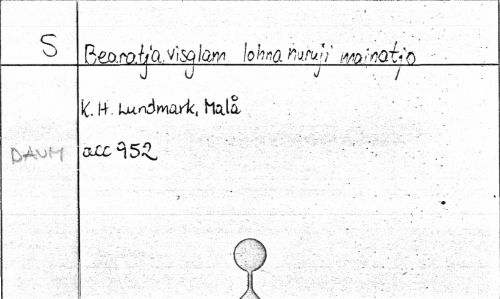 S Bearatja visglam lohna nuruji mainatjo
K. H. Lundmark, Malå
DAUM acc 952